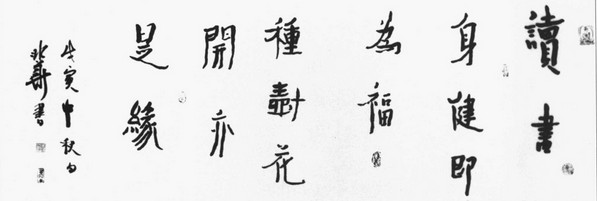 讀書
身健即
為福
種樹花
開亦
是緣
戊寅中秋
壽書